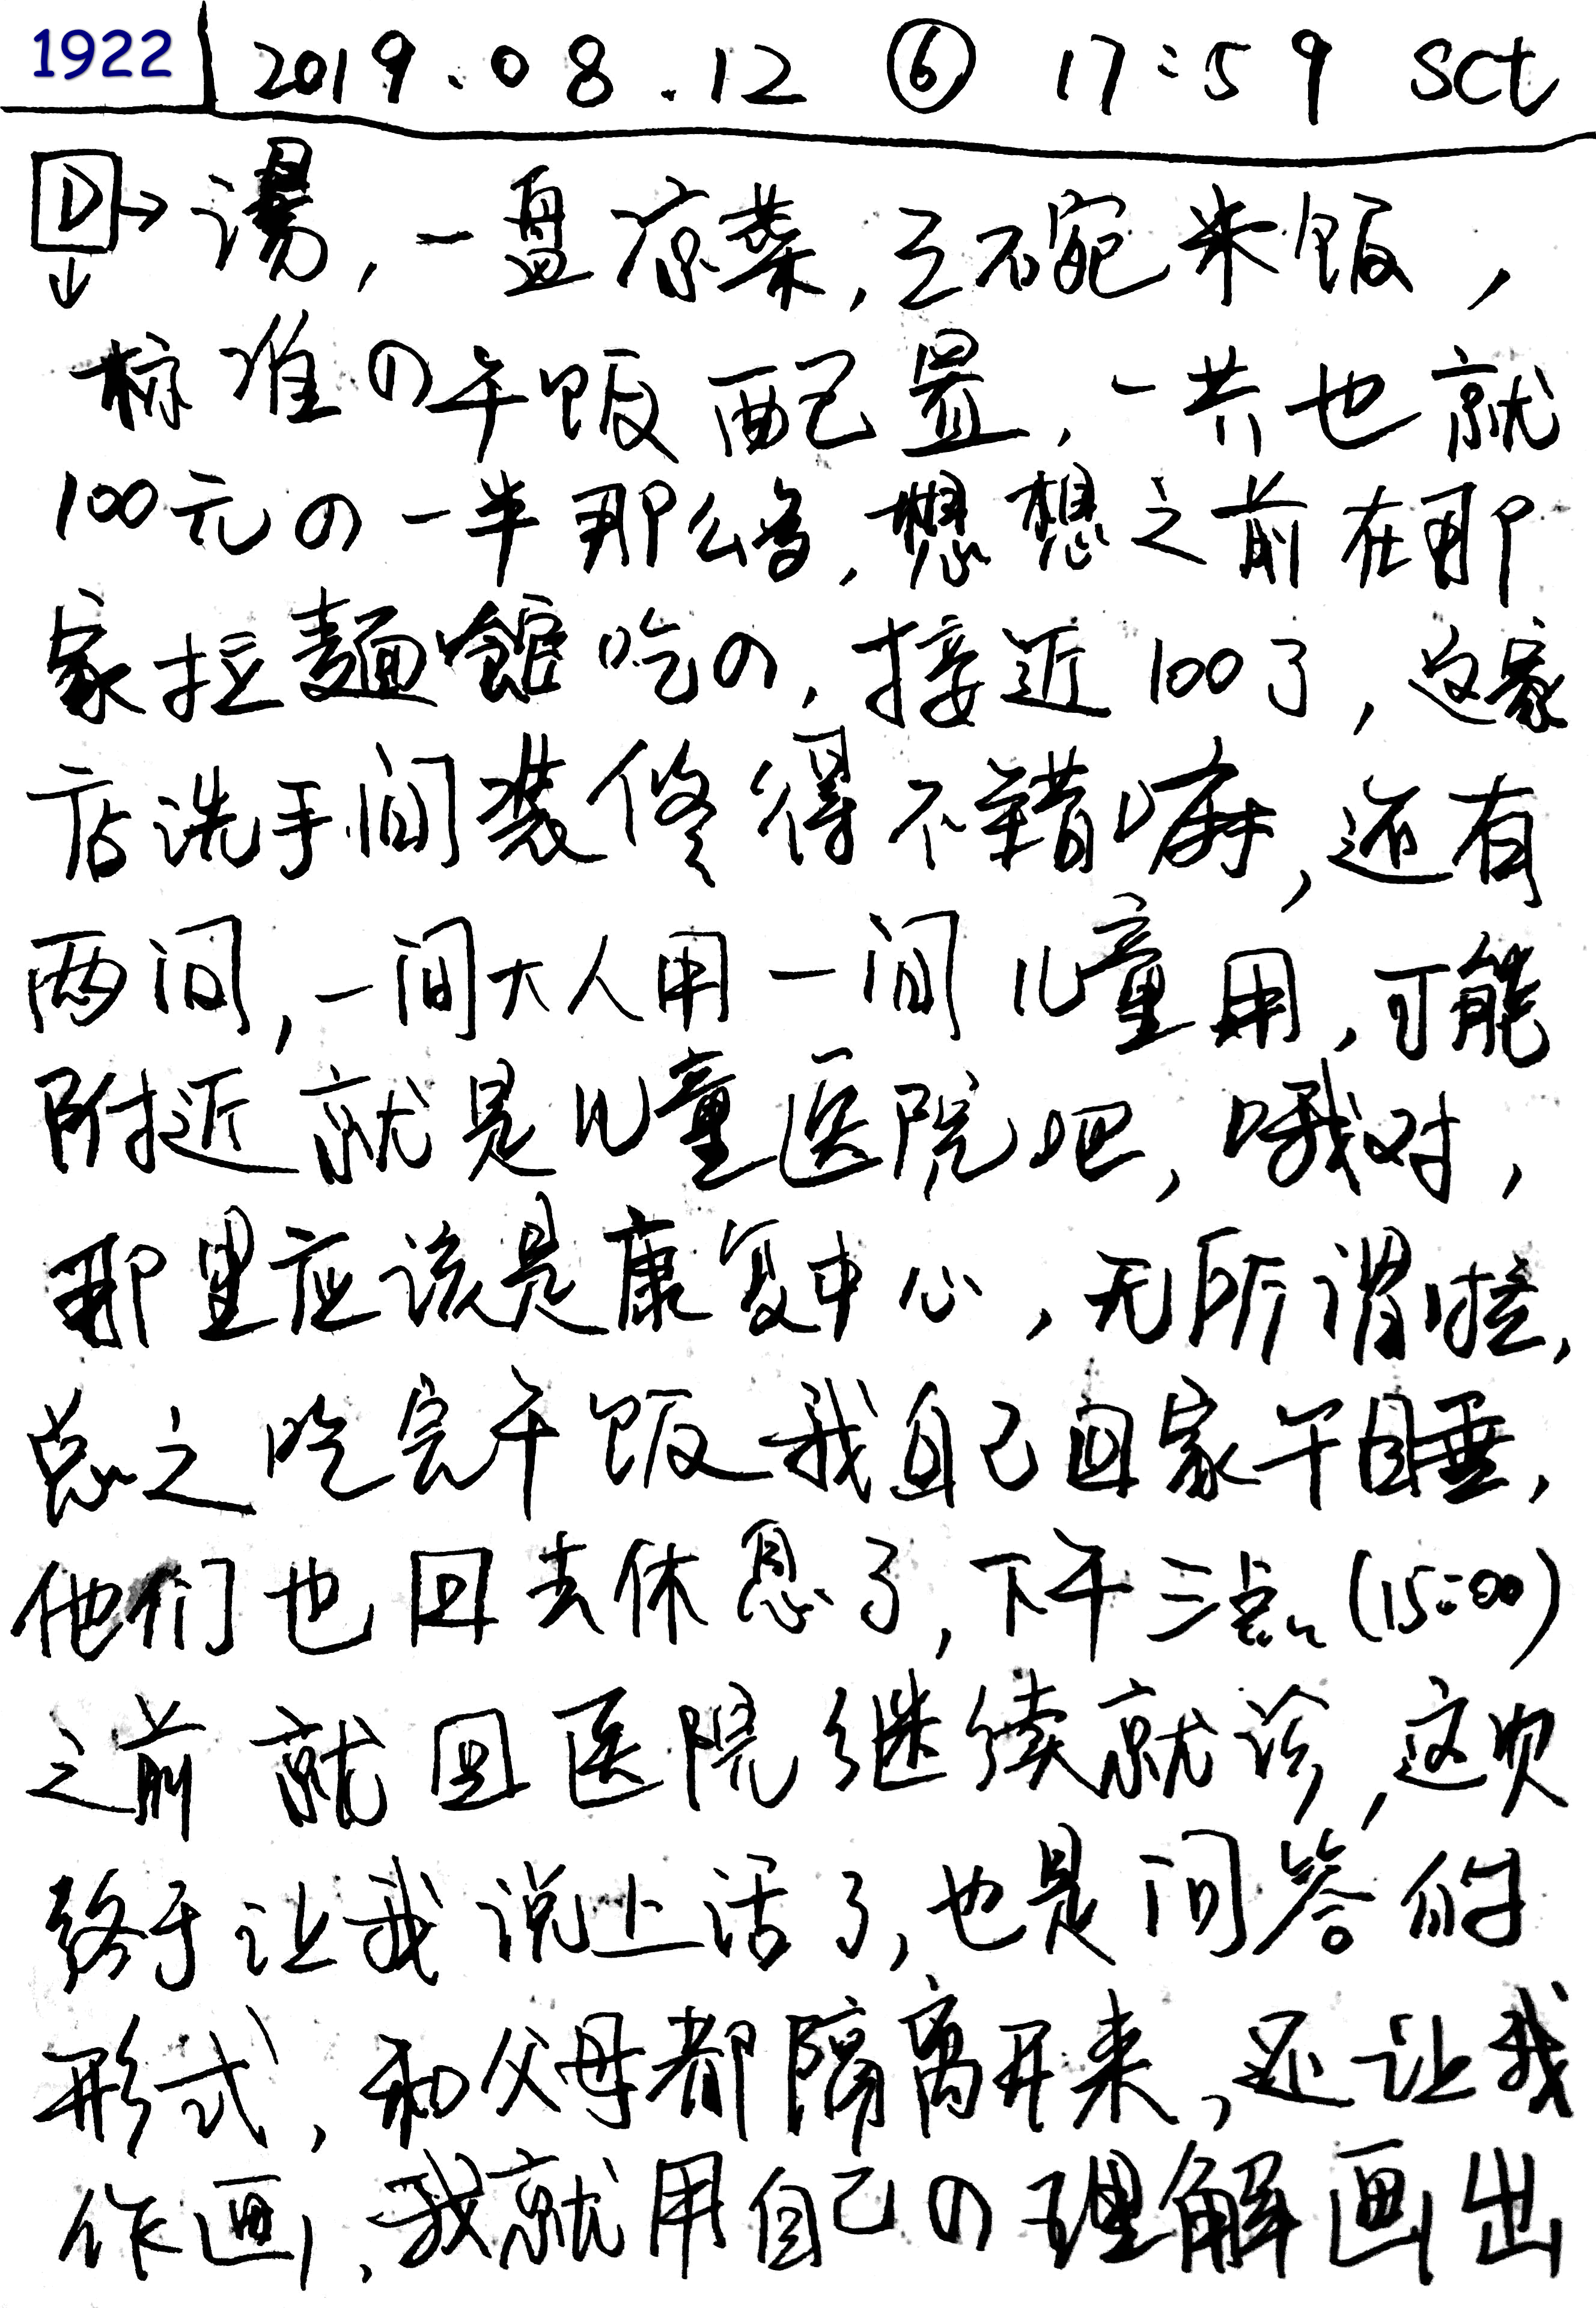 1922 2019.08.12 ⑥ 17:59 Sct
D→湯,一盘凉菜,三碗米饭,
↓
标准の午饭配置,一共也就
100元の一半那么多,想想之前在那
家拉麺館吃の,接近100了,这家
店洗手间装修得不错嘛,还有
两间,一间大人用一间儿童用,可能
附近就是儿童医院吧,哦对,
那里应该是康复中心,无所谓啦,
总之吃完午饭我自己回家午睡,
他们也回去休息了,下午三点(15:00)
之前就回医院继续就诊,这次
终于让我说上话了,也是问答的
形式,和父母都隔离开来,还让我
作画,我就用自己の理解画出